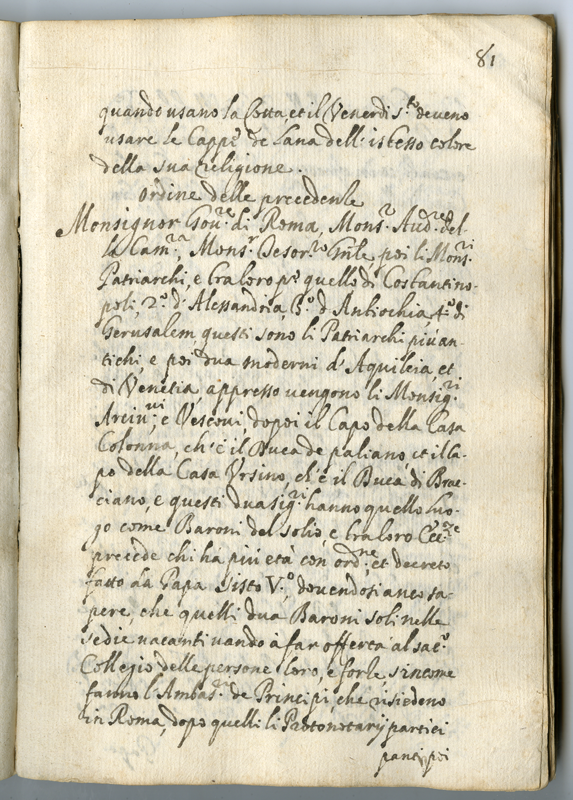 81
quando usano la Cotta, et il Venerdi s.to deveno
usare le Cappe de Lana dell' istesso colore
della sua religione.
Ordine delle precedenze
Monsignor Gov.re di Roma, Mons.r Aud.re del-
la Cam.ra, Mons.r Tesor.ro Gn̄le poi li Mons.ri
Patriarchi, e tra loro p.o quello di Costantino-
poli, 2.o d'Alessandria, 3.o d'Antiochia, 4.o di
Gerusalem questi sono li Patriarchi più an-
tichi, e poi dua moderni d'Aquileia, et
di Venetia, appresso vengono li Monsig.ri
Arciv.vi, e Vescovi, dopoi il Capo della Casa
Colonna, ch'è il Duca de paliano, et il Ca-
po della Casa Ursino, ch'è il Duca di Brac-
ciano, e questi dua sig.ri hanno quello luo-
go come Baroni del solio, e tra loro Ecc.ze
precede chi hà più età con ord.ne, et decreto
fatto da Papa Sisto V.o, dovendosi anco sa-
pere, che quelli dua Baroni soli nelle
sedie vacanti vando à far offerta al sac.o
Collegio delle persone loro, e forze, sincome
fanno l'Ambas.ri de Principi, che risiedono
in Roma, dopo quelli li Protonotarij partici
pantij poi